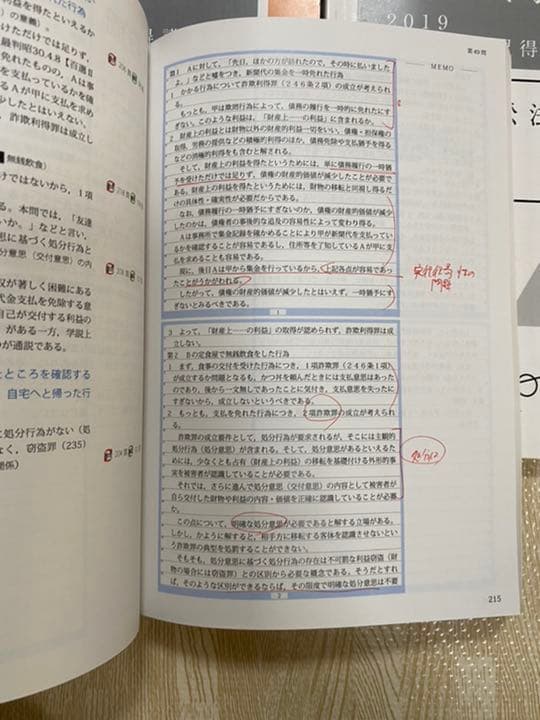 れた行為
の意義）。
利益を得たといえるか
だけでは足りず、
最判昭30.4.8【百選Ⅱ
れたものの、Aは事
を支払っているかを確
るAが甲に支払を求め
少したとはいえない。
詐欺利得罪は成立し
無銭飲食）
けではないから、1項
る。本問では、「友達
いか。」などと言い、
思に基づく処分行為と
意思（交付意思）の内
収が著しく困難にある
代金支払を免除する意
自己が交付する利益の
がある一方、学説上
つが通説である。
たところを確認する
自宅へと帰った行
に処分行為がない（処
なく、窃盗罪（235）
関係）
第49問
MEMO
第1 Aに対して、「先日、ほかの方が訪れたので、その時に払いました
よ。」などと嘘をつき、新聞代の集金を一時免れた行為
1 かかる行為について詐欺利得罪（246条2項）の成立が考えられ
る。
もっとも、甲は欺罔行為によって、債務の履行を一時的に免れたにす
ぎない。このような利益は、「財産上……の利益」に含まれるか。
2 財産上の利益とは財物以外の財産的利益一切をいい、債権・担保権の
取得、労務の提供などの積極的利得のほか、債務免除や支払猶予を得る
などの消極的利得をも含むと解される。
そして、財産上の利益を得たというためには、単に債務履行の一時猶
予を受けただけでは足りず、債権の財産的価値が減少したことが必要で
ある。財産上の利益を得たというためには、財物の移転と同視し得るだ
けの具体性・確実性が必要だからである。
なお、債務履行の一時猶予にすぎないのか、債権の財産的価値が減少
したのかは、債権者の事後的な追及の容易性によって変わり得る。
Aは事務所で集金記録を確かめることにより甲が新聞代を支払ってい
るかを確認することが容易であるし、住所等を知っているAが甲に支
払を求めることも容易である。
現に、後日Aは甲から集金を行っているから、上記各点が容易であっ
たことがうかがわれる。
したがって、債権の財産的価値が減少したとはいえず、一時猶予にす
ぎないとみるべきである。
1
3 よって、「財産上……の利益」の取得が認められず、詐欺利得罪は成
立しない。
第2 Bの定食屋で無銭飲食をした行為
1 まず、食事の交付を受けた行為につき、1項詐欺罪（246条1項）
が成立するか問題となるも、かつ丼を頼んだときには支払意思はあった
のであり、後から一文無しであったことに気付き、支払意思を失ったに
すぎないから、成立しないというべきである。
2 もっとも、支払を免れた行為につき、2項詐欺罪の成立が考えられ
る。
詐欺罪の成立要件として、処分行為が要求されるが、そこには主観的
処分行為（処分意思）が含まれる。そして、処分意思があるといえるた
めには、少なくとも占有（財産上の利益）の移転を基礎付ける外形的事
実を被害者が認識していることが必要である。
それでは、さらに進んで処分意思（交付意思）の内容として被害者が
自ら交付した財物や利益の内容・価値を正確に認識していることが必要
か。
この点について、明確な処分意思が必要であると解する立場がある。
しかし、かように解すると、相手方に移転する客体を認識させないとい
う詐欺罪の典型を処罰することができない。
そもそも、処分意思に基づく処分行為の存在は不可罰な利益窃盗（財
物の場合には窃盗罪）との区別から必要な概念である。そうだとすれ
ば、そのような区別ができるならば、その限度で明確な処分意思は不要
2
215
問題
2019